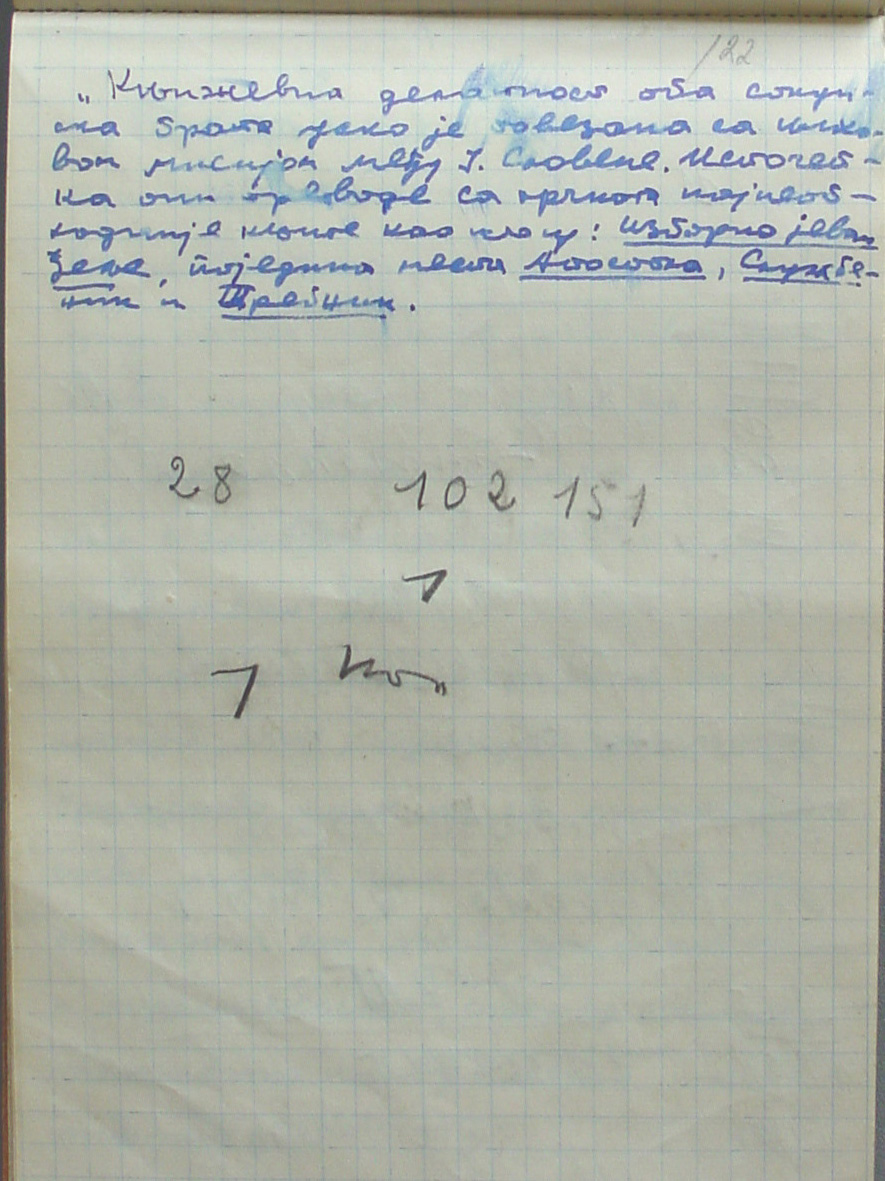 122
„Књижевна делатност оба солун-
ска брата уско је повезана са њихо-
вом мисијом међу Ј. Словене. Испочет-
ка они преводе са грчкога најнеоп-
ходније књиге као што су: Изборно јеван
ђеље, поједина места Апостола, Служе-
ник и Требник.
28 102 151
1
1